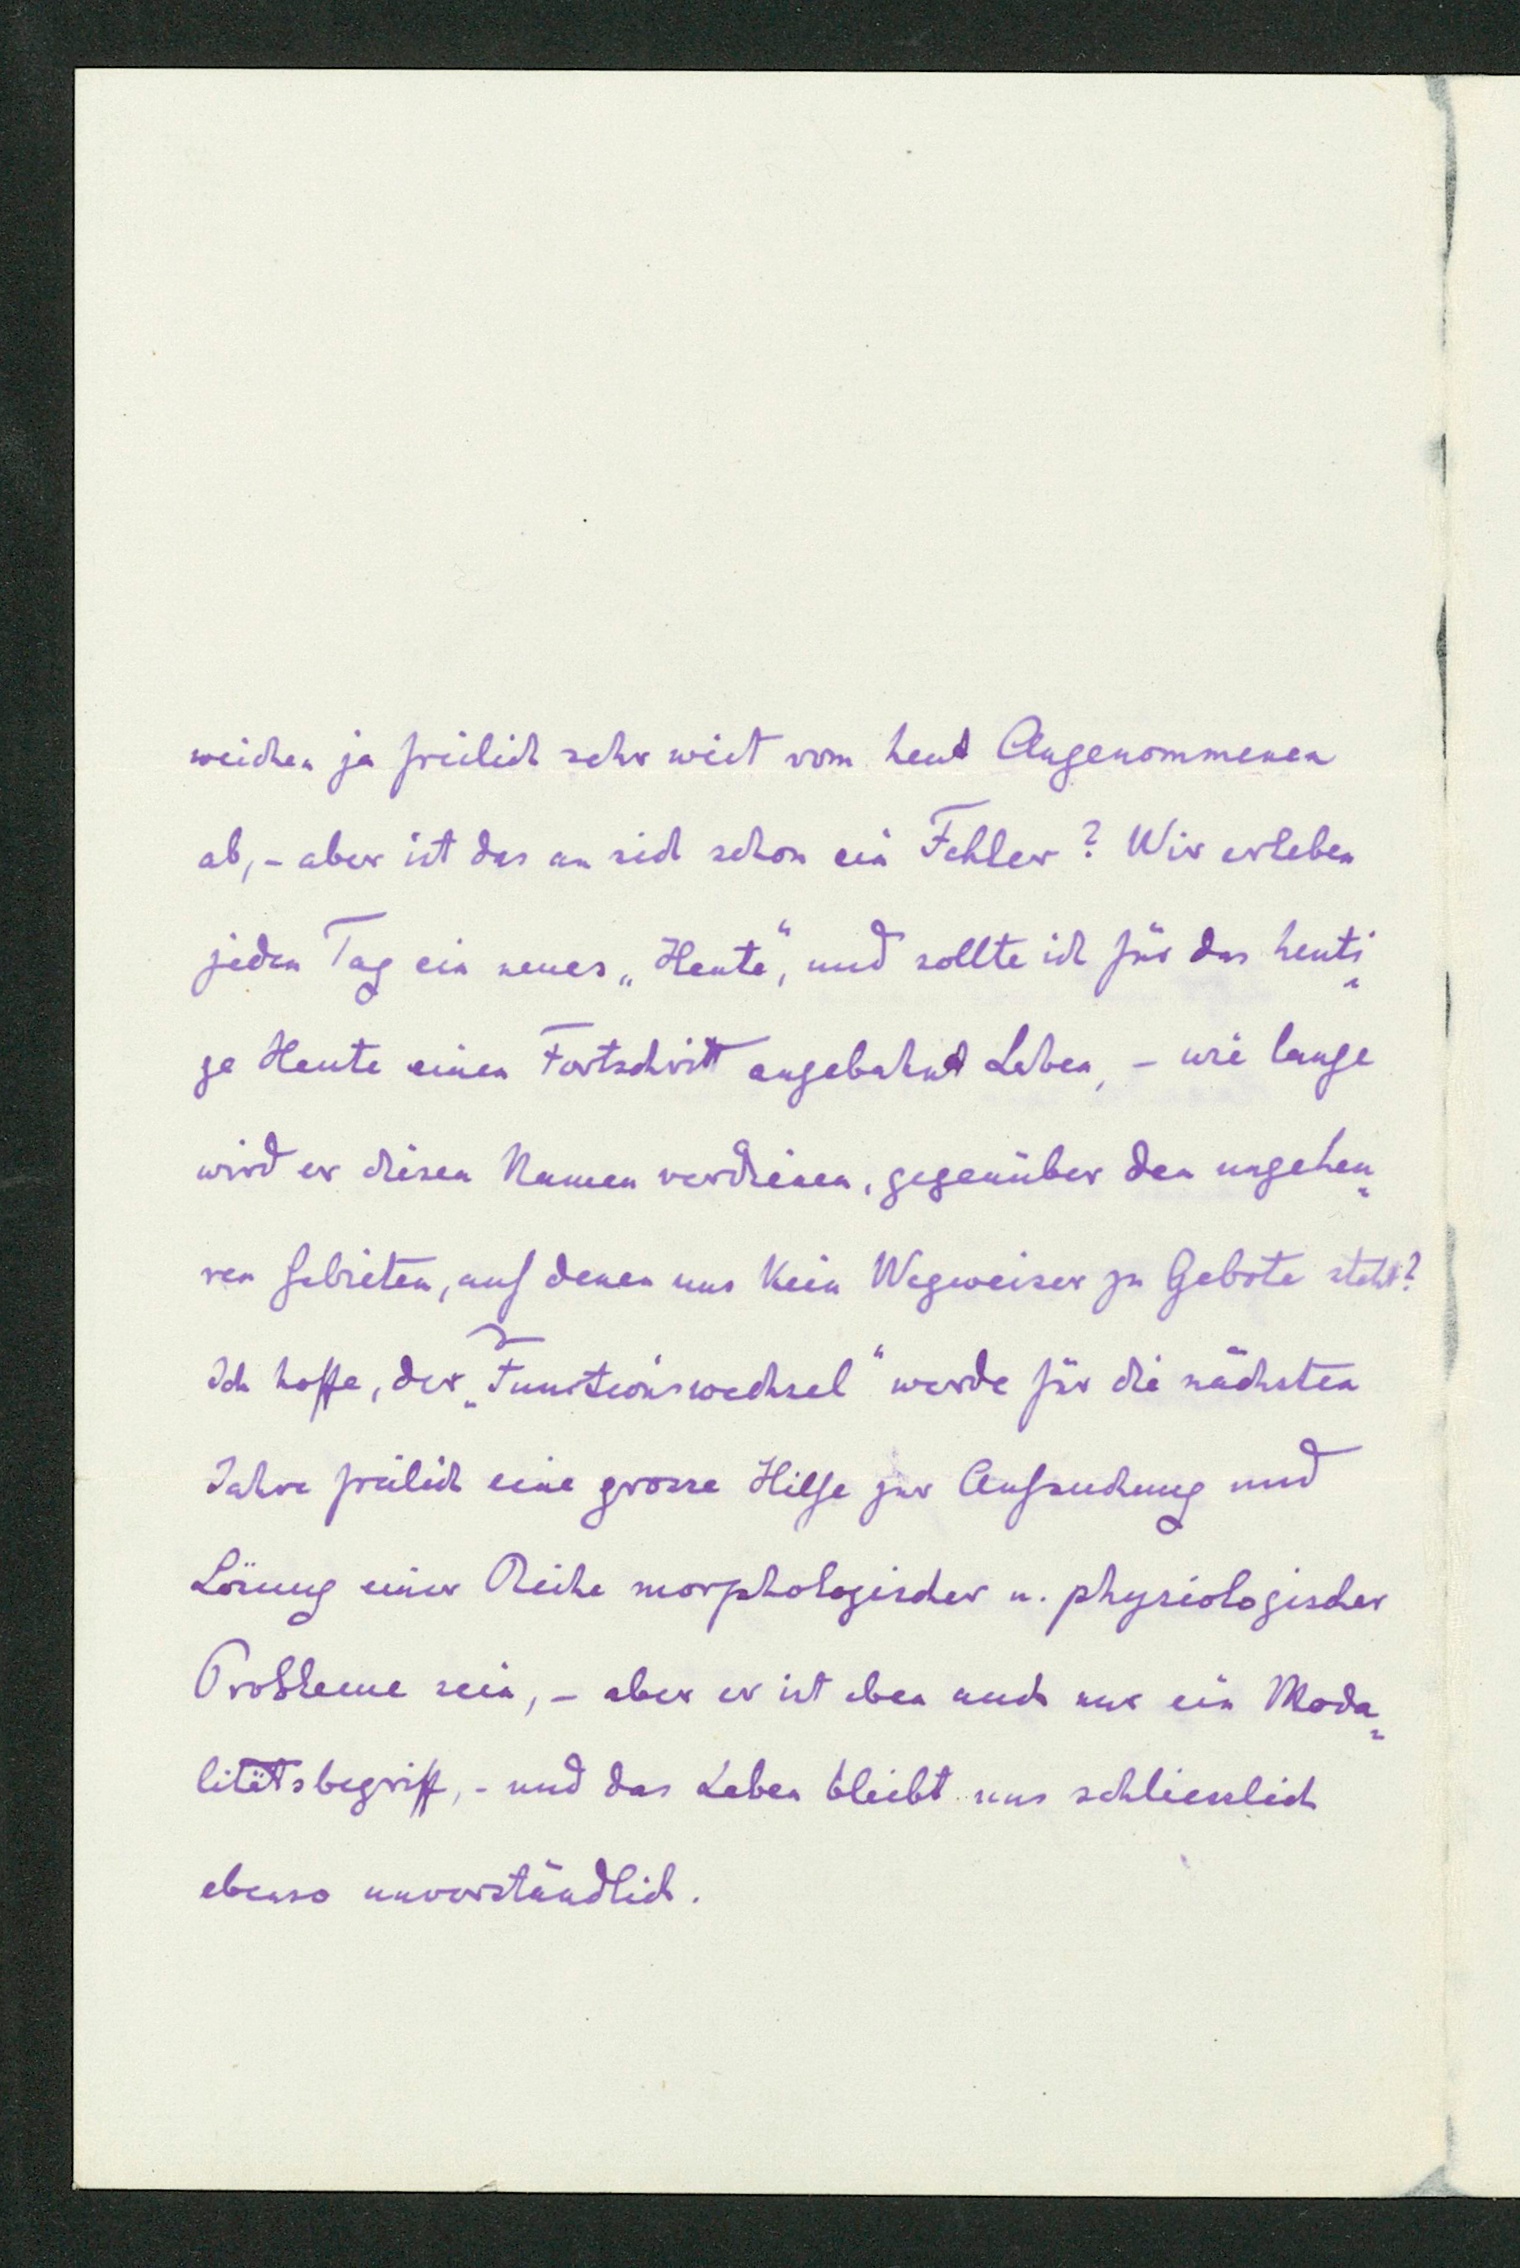 weichen ja freilich sehr weit vom heut Angenommenen
ab, – aber ist das an sich schon ein Fehler? Wir erleben
jeden Tag ein neues „Heute“, und sollte ich für das heuti=
ge Heute einen Fortschritt angebahnt haben, – wie lange
wird er diesen Namen verdienen, gegenüber den ungeheu=
ren Gebieten, auf denen uns kein Wegweiser zu Gebote steht?
Ich hoffe, der „Functionswechsel“ werde für die nächsten
Jahre freilich eine grosse Hilfe zur Aufsuchung und
Lösung einer Reihe morphologischer u. physiologischer
Probleme sein, – aber er ist eben auch nur ein Moda=
litätsbegriff, – und das Leben bleibt uns schliesslich
ebenso unverständlich.